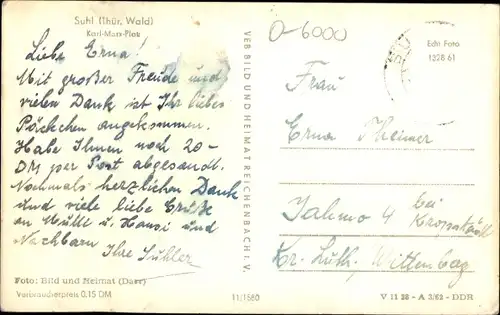 Suhl (Thür. Wald)
Karl-Marx-Platz
Liebe Erna!
Mit großer Freude und
vielen Dank ist Ihr liebes
Päckchen angekommen.
Habe Ihnen noch 20-
DM per Post abgesandt.
Nochmals herzlichen Dank
und viele liebe Grüße
an Mutti u. Hansi und
Nachbarn
Ihre Suhler
Foto: Bild und Heimat (Darr)
Verbraucherpreis 0,15 DM
VEB BILD UND HEIMAT REICHENBACH I. V.
11/1580
O-6000
Echt Foto
1328 61
Frau
Erna Theimer
Jahmo 4 bei
Kropstädt
Kr. Luth. Wittenberg
V 11 28 - A 3/62 - DDR